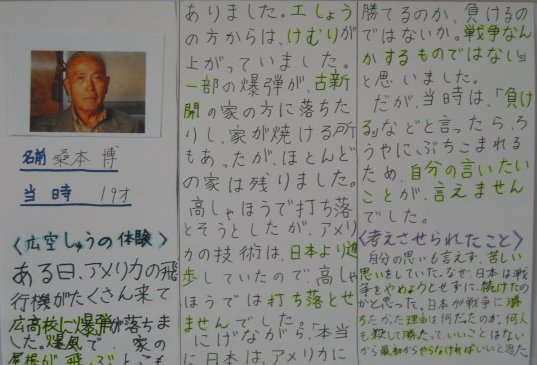 名前 桑本 博
当時 19才
〈広空しゅうの体験〉
ある日、アメリカの飛
行機がたくさん来て
広高校に爆弾が落ちま
した。爆風で、家の
屋根が飛ぶところも
ありました。工しょう
の方からは、けむりが
上がっていました。
一部の爆弾が、古新
開の家の方に落ちた
りし、家が焼ける所
もあったが、ほとんど
の家は残りました。
高しゃほうで打ち落
とそうとしたが、アメリ
カの技術は、日本より進
歩していたので、高しゃ
ほうでは打ち落とせ
ませんでした。
にげながら、「本当
に日本は、アメリカに
勝てるのか、負けるの
ではないか。戦争なん
かするものではない」
と思いました。
だが、当時は、「負け
る」などと言ったら、ろ
うやにぶちこまれる
ため、自分の言いたい
ことが、言えません
でした。
〈考えさせられたこと〉
自分の思いも言えず、苦しい
思いをしていた。なぜ、日本は戦
争をやめようとせずに、続けたの
かと思った。日本が戦争に勝
ちたかった理由は何だったのか、何人
も殺して勝ったっていいことはない
から最初からやらなければいいと思た